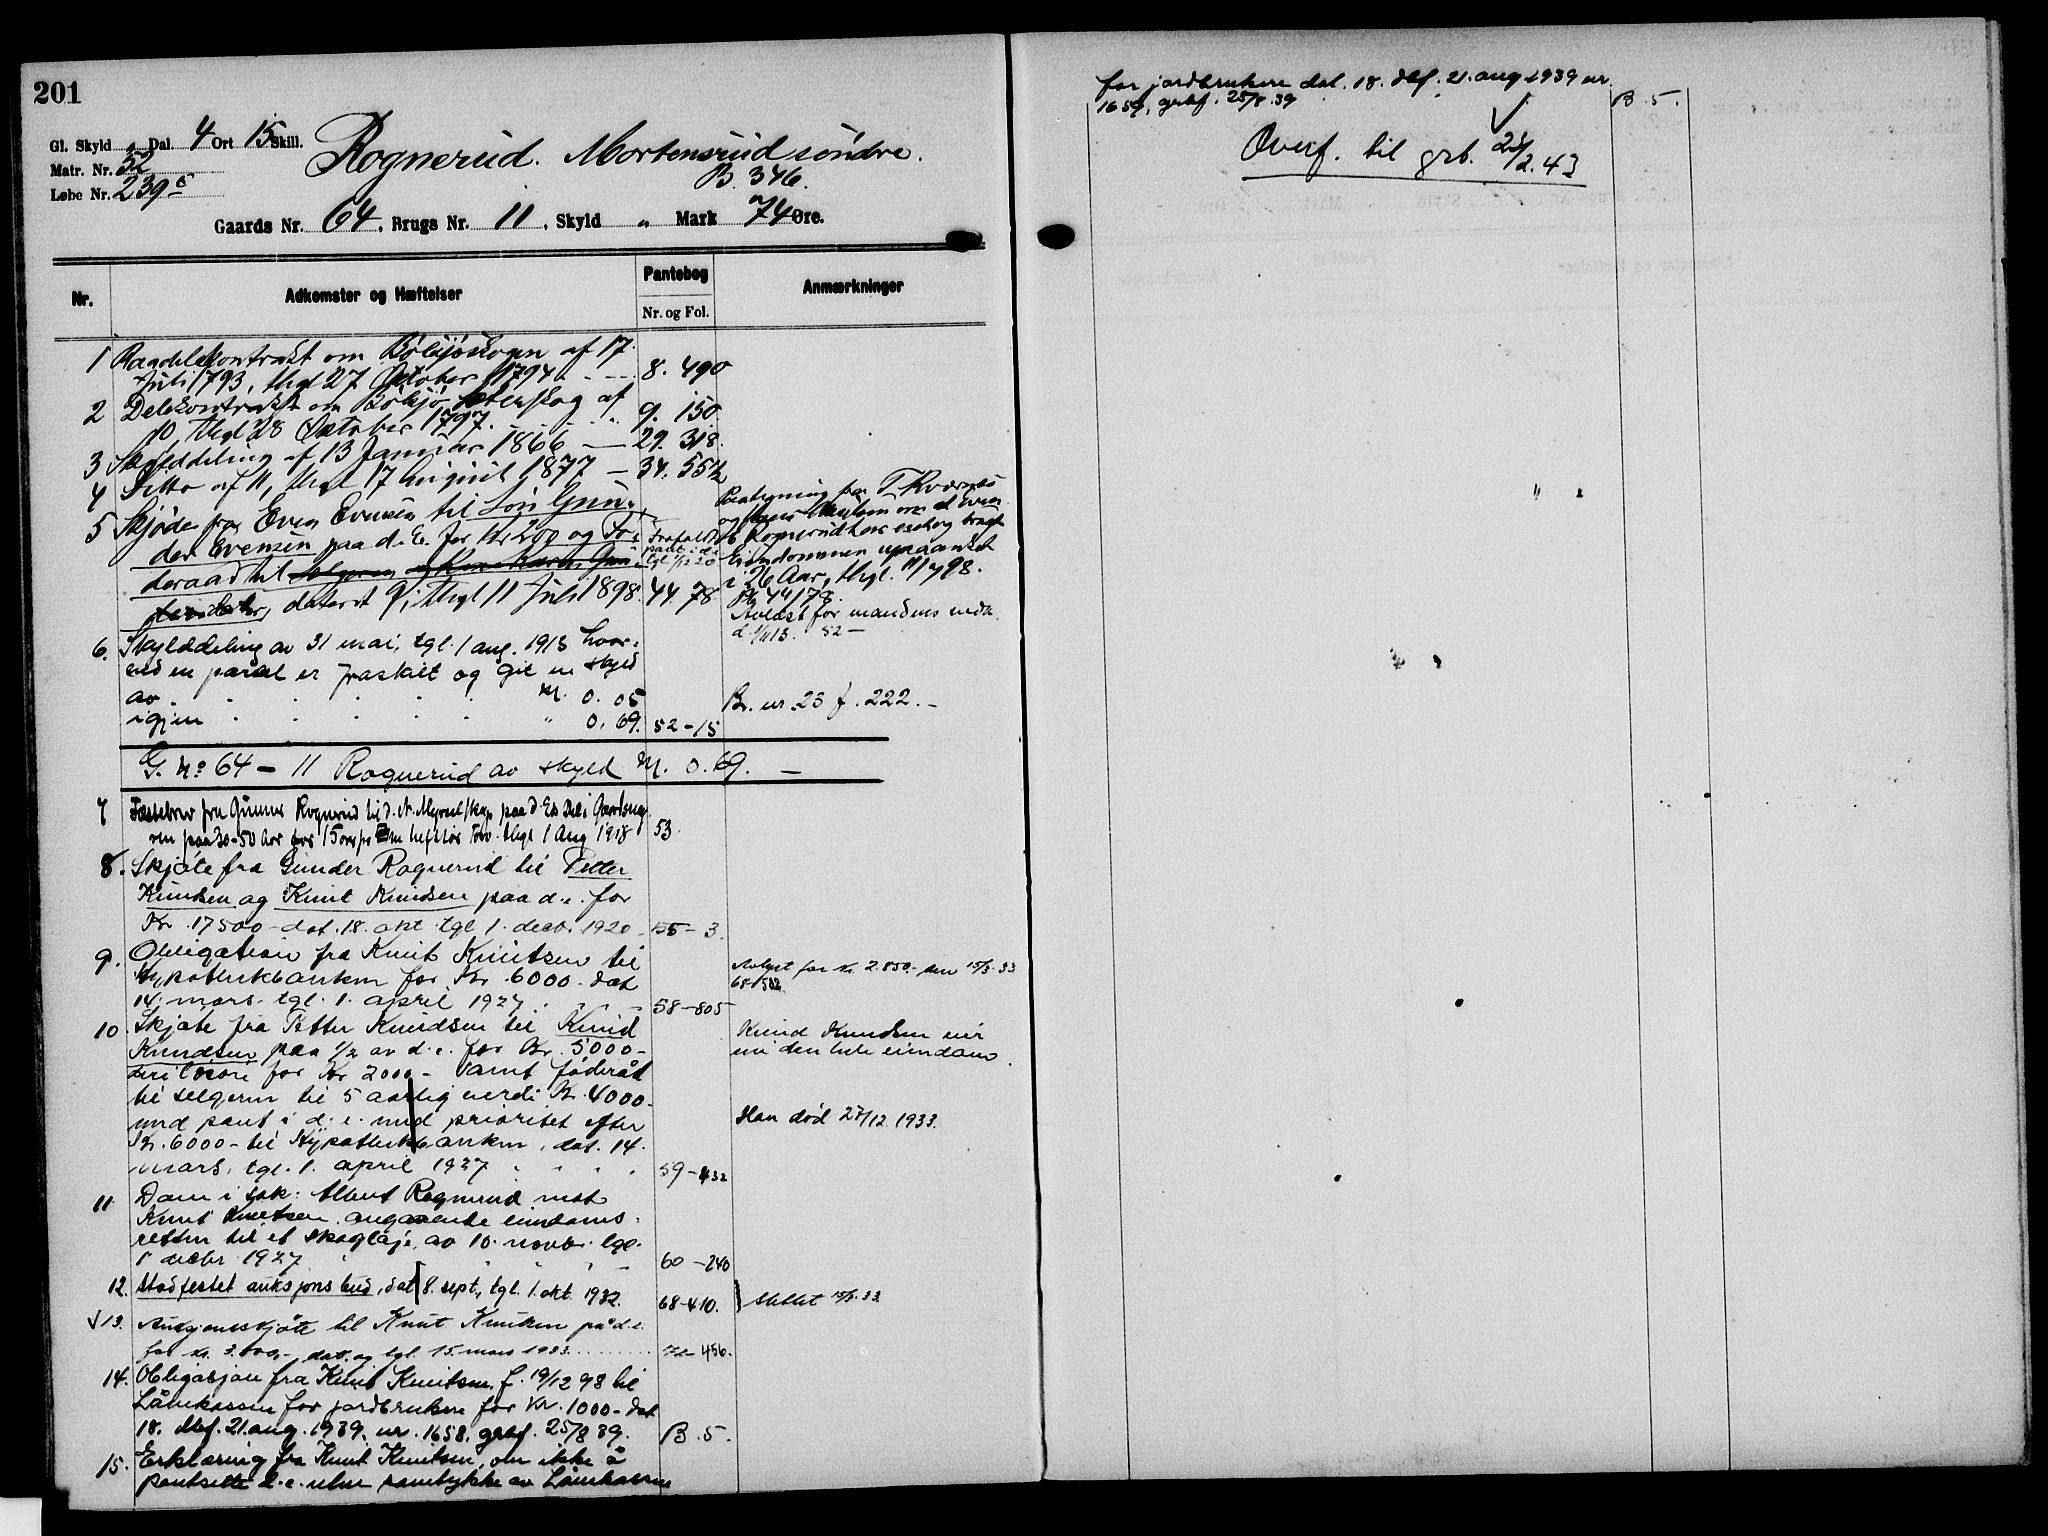 201
Gl. Skyld „ Dal. 4 Ort 15 Skill.
Matr. Nr. 52
Løbe Nr. 239
Rognerud. Mortensrud søndre.
B. 346.
Gaards Nr. 64, Brugs Nr. 11, Skyld „ Mark 74 Øre.
Nr.
Adkomster og Hæftelser
Pantebog
Nr. og Fol.
Anmærkninger
1 kontrakt om af 17
Juli 1793, thgl 27 Oktober 1794 8. 490
2 Delekontrakt om af
10, thgl 28 Oktober 1797. 9. 150
3 Skylddeling af 13 Januar 1866 — 29. 318.
4 Ditto af 11, thgl 17 August 1877 — 34. 552
5 Skjøde fra Even Evensen til
der Evensen paa d. E. for Kr 200 og Fo-
deraad til
dateret 9, thgl 11 Juli 1898. 44. 78
fra
og om at Even
Rognerud har og brugt
Eiendommen upaaanket
i 26 Aar, thgl. 11/7 98.
Pb 44/78.
Avlæst for mandens vedk.
52 —
6. Skylddeling av 31 mai, tgl. 1 aug. 1913 hvor-
ved en parcel er fraskilt og git en skyld
av . . . . . . M. 0. 05
igjen . . . . . " 0. 69. 52 – 15
Br. nr. 23 f. 222. –
G. No 64 – 11 Rognerud av skyld M. 0. 69. –
7 Fæstebrev fra Gunner Rognerud til d. N. Myrselskap paa d. Es Del i
paa 30-50 Aar for 15 øre pr Torv. thgl 1 Aug 1918 53.
8. Skjøte fra Gunder Rognerud til Petter
Knudsen og Knut Knudsen paa d.e. for
Kr. 17500 – dat. 18. okt. tgl 1. decbr. 1920 – 3.
9. Obligation fra Knut Knutsen til
Hypotekbanken for Kr. 6000. dat
14. mars. tgl. 1. april 1927 58 – 805
Avlyst for kr. 2.850.- den 15/3. 33
10 Skjøte fra Petter Knudsen til Knud
Knudsen paa 1/2 av d.e. for Kr. 5000 –
for Kr 2000 – samt føderåd
til selgeren til 5 aarlig verdi Kr. 4000 –
med pant i d. e. med prioritet efter
Kr. 6000 – til Hypotekbanken, dat. 14.
mars, tgl. 1. april 1927 59 – 432
Knud Knudsen eier
nu den hele eiendom.
Han død 27/12 1933.
11. Dom i sak: Albert Rognerud mot
Knut Knutsen angaaende eiendoms-
retten til et av 10. novbr. tgl.
1 decbr. 1927 60 – 240
12. Stadfestet auksjonsbud, dat 8. sept, tgl. 1. okt. 1932. 68 – 410. } slettet 15/3. 33
√ 13. Auksjonsskjøte til Knut Knutsen på d.e.
for kr. 3.000,–, dat. og tgl. 15. mars 1933. . . . . . . . . 456.
14. Obligasjon fra Knut Knutsen f. 19/12 98 til
Lånekassen for jordbrukere for kr. 1000 – dat
18. dbf. 21 aug. 1939, nr. 1658. grbf. 25/8 39. B. 5.
15. Erklæring fra Knut Knutsen, om ikke å
pantsette d.e. uten samtykke av Lånekassen
for jordbrukere dat. 18. dbf. 21. aug 1939 nr
1659, grbf. 25/8. 39 B. 5.
Overf. til grb. 2.43